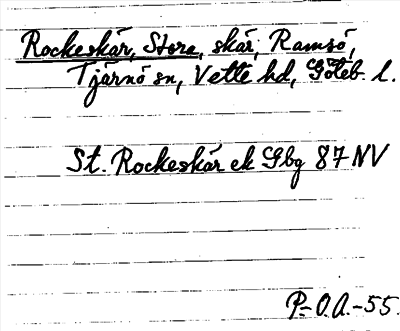 Rockeskär, Stora, skär, Ramsö,
Tjärnö sn, Vette hd, Göteb. l.
St. Rockeskär ek Gbg 87 NV
P.-O.A.-55.